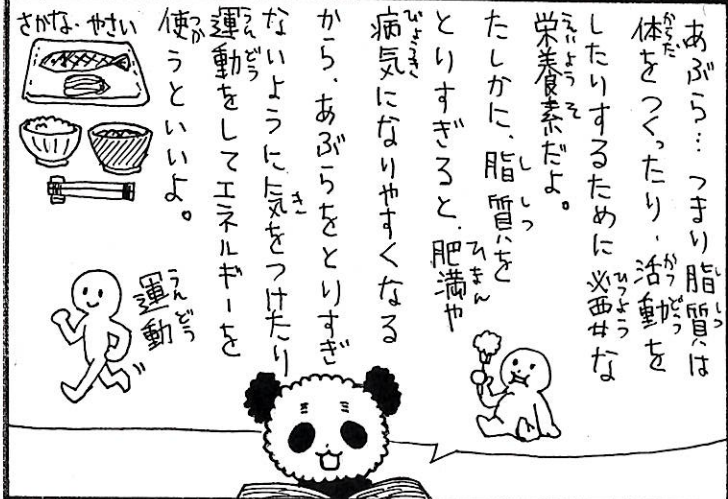 あぶら…つまり脂質は
体をつくったり、活動を
したりするために必要な
栄養素だよ。
たしかに、脂質を
とりすぎると、肥満や
病気になりやすくなる
から、あぶらをとりすぎ
ないように気をつけたり
運動をしてエネルギーを
使うといいよ。
さかな・やさい
運動